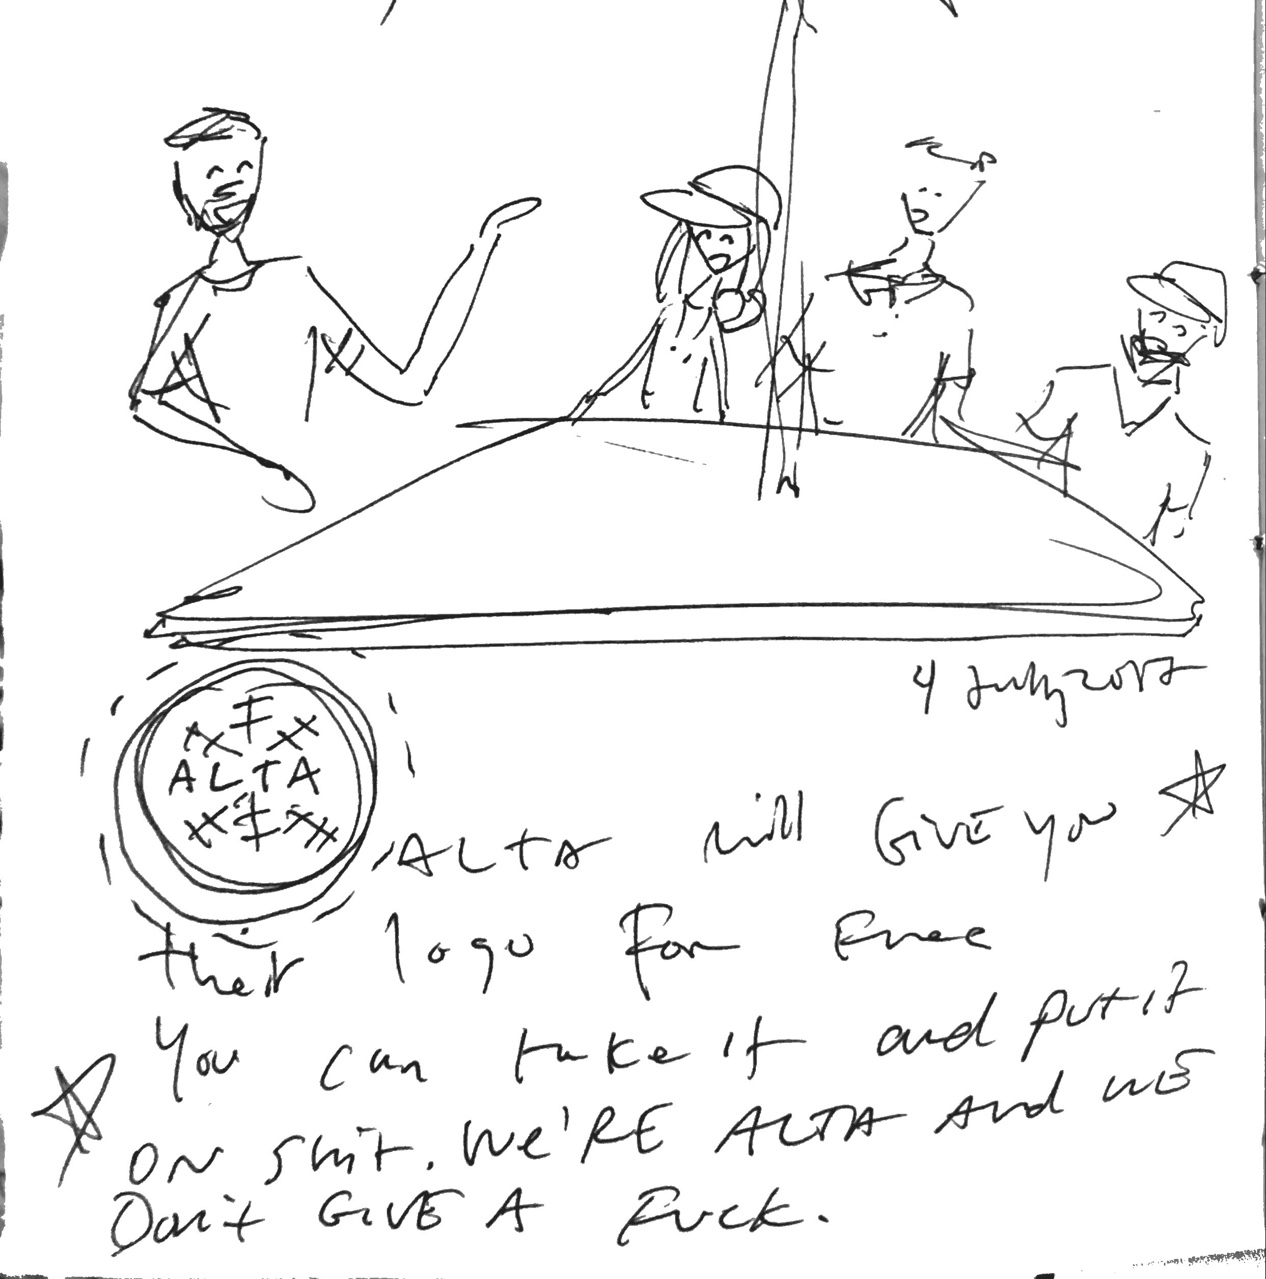 4 July 2017
ALTA
ALTA will GIVE you
their logo For Free
You can take it and put it
on shit. We'RE ALTA And WE
Don't GIVE A Fuck.